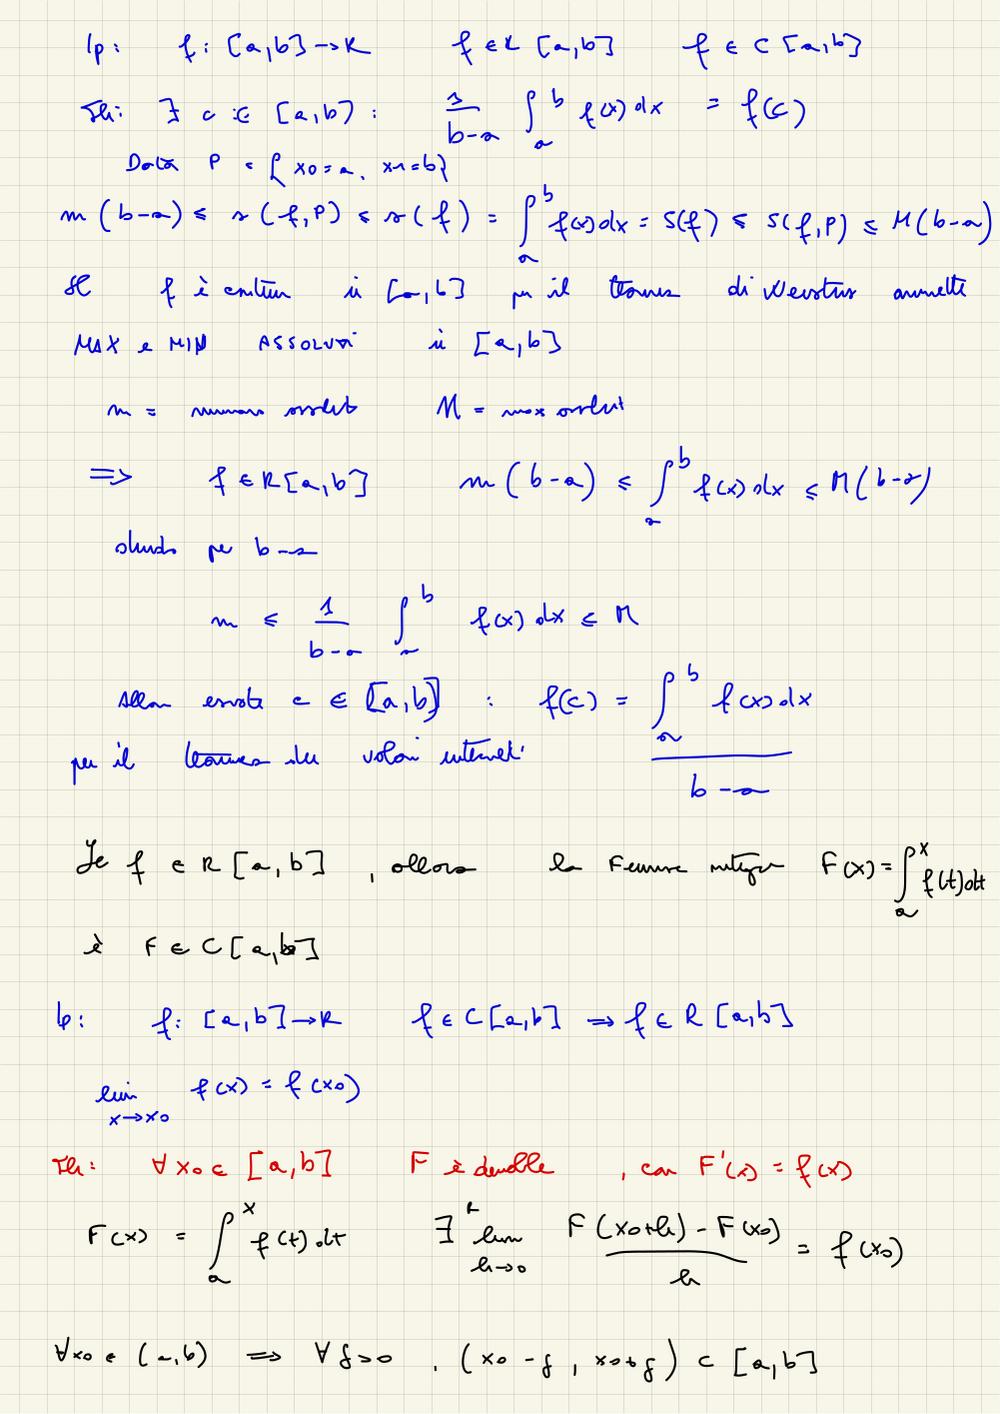 Ip: f: [a,b] → R f ∈ R [a,b] f ∈ C [a,b]
Th: ∃ c ∈ [a,b] : 1/(b-a) ∫_a^b f(x) dx = f(c)
Data P = { x0 = a, x1 = b}
m (b-a) ≤ s (f,P) ≤ s(f) = ∫_a^b f(x) dx = S(f) ≤ S(f,P) ≤ M(b-a)
Se f è in [a,b] per il teorema di ammette
MAX e MIN ASSOLUTI in [a,b]
m = minimo assoluto M = max assoluto
=> f ∈ R[a,b] m (b-a) ≤ ∫_a^b f(x) dx ≤ M(b-a)
per b-a
m ≤ 1/(b-a) ∫_a^b f(x) dx ≤ M
allora c ∈ [a,b] : f(c) = ∫_a^b f(x) dx / (b-a)
per il teorema dei valori
Se f ∈ R [a,b] , allora la F(x) = ∫_a^x f(t) dt
è F ∈ C [a,b]
Ip: f: [a,b] → R f ∈ C[a,b] => f ∈ R [a,b]
lim_{x→x0} f(x) = f(x0)
Th: ∀ x0 ∈ [a,b] F è , con F'(x) = f(x)
F(x) = ∫_a^x f(t) dt ∃ lim_{h→0} (F(x0+h) - F(x0)) / h = f(x0)
∀ x0 ∈ (a,b) => ∀ δ>0 , (x0 - δ , x0+δ) ⊂ [a,b]